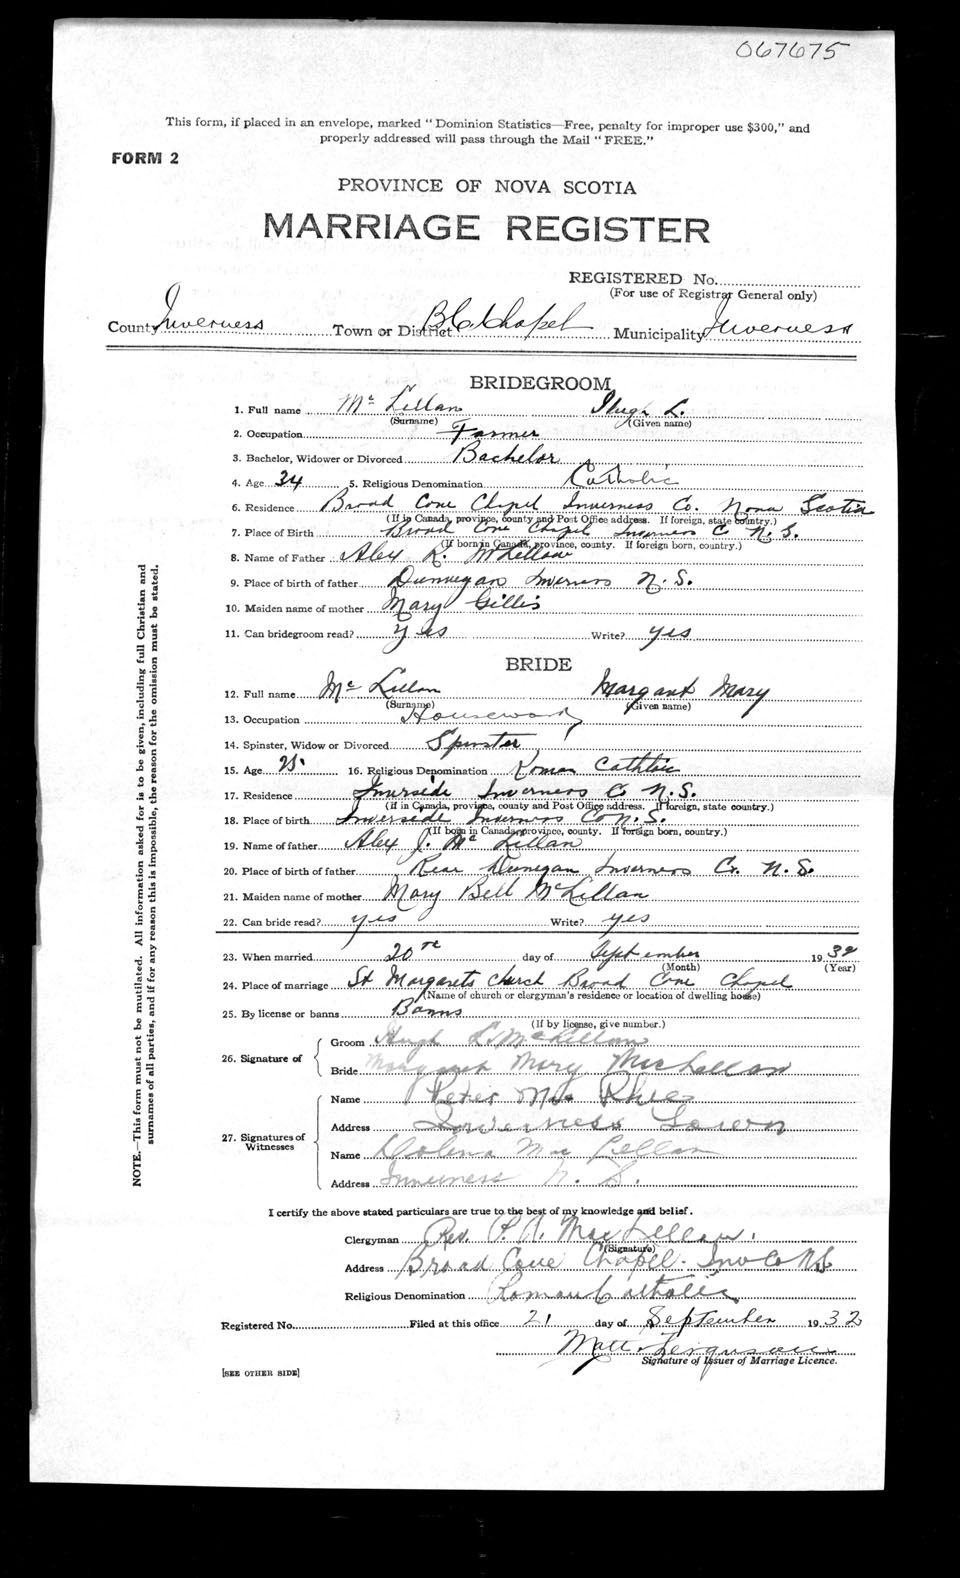 067675
This form, if placed in an envelope, marked "Dominion Statistics—Free, penalty for improper use $300," and
properly addressed will pass through the Mail "FREE."
FORM 2
PROVINCE OF NOVA SCOTIA
MARRIAGE REGISTER
REGISTERED No.
(For use of Registrar General only)
County Inverness Town or District B C Chapel Municipality Inverness
BRIDEGROOM
1. Full name Mc Lellan Hugh L.
(Surname) (Given name)
2. Occupation Farmer
3. Bachelor, Widower or Divorced Bachelor
4. Age 34 5. Religious Denomination Catholic
6. Residence Broad Cove Chapel Inverness Co. Nova Scotia
(If in Canada, province, county and Post Office address. If foreign, state country.)
7. Place of Birth Broad Cove Chapel Inverness C N.S.
(If born in Canada, province, county. If foreign born, country.)
8. Name of Father Alex R. McLellan
9. Place of birth of father Dunvegan Inverness N.S.
10. Maiden name of mother Mary Gillis
11. Can bridegroom read? Yes Write? yes
BRIDE
12. Full name Mc Lellan Margaret Mary
(Surname) (Given name)
13. Occupation Housework
14. Spinster, Widow or Divorced Spinster
15. Age 16. Religious Denomination Roman Catholic
17. Residence Inverside Inverness Co N.S.
(If in Canada, province, county and Post Office address. If foreign, state country.)
18. Place of birth Inverside Inverness Co N.S.
(If born in Canada, province, county. If foreign born, country.)
19. Name of father Alex J. Mc Lellan
20. Place of birth of father Rear Dunvegan Inverness Co. N.S.
21. Maiden name of mother Mary Bell McLellan
22. Can bride read? yes Write? yes
23. When married 20th day of September 1932
(Month) (Year)
24. Place of marriage St Margarets Church Broad Cove Chapel
(Name of church or clergyman's residence or location of dwelling house)
25. By license or banns Banns
(If by license, give number.)
26. Signature of
Groom Hugh L. McLellan
Bride Margaret Mary MacLellan
27. Signatures of Witnesses
Name Peter Mac Rhee
Address Inverness Town
Name Dolena Mac Lellan
Address Inverness N. S.
I certify the above stated particulars are true to the best of my knowledge and belief.
Clergyman Rev. P. A. MacLellan.
(Signature)
Address Broad Cove Chapel. Inv Co NS
Religious Denomination Roman Catholic
Registered No. Filed at this office 21 day of September 1932
Matt Ferguson
Signature of Issuer of Marriage Licence.
[SEE OTHER SIDE]
NOTE.—This form must not be mutilated. All information asked for is to be given, including full Christian and
surnames of all parties, and if for any reason this is impossible, the reason for the omission must be stated.